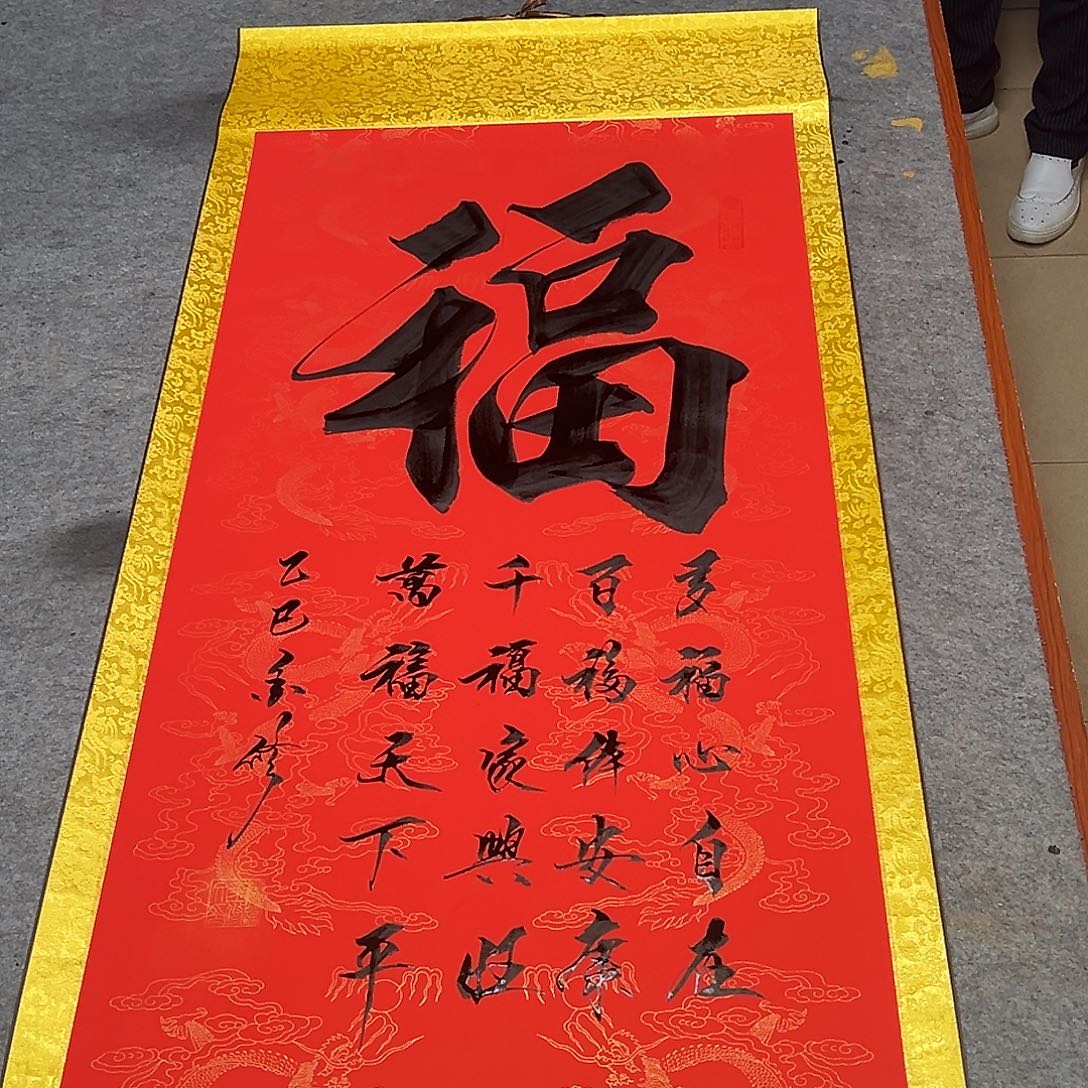 福
多福心自在
百福体安康
千福家興旺
萬福天下平
乙巳